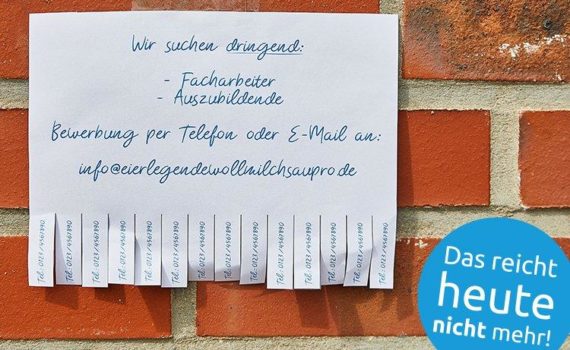 Wir suchen dringend:
- Facharbeiter
- Auszubildende
Bewerbung per Telefon oder E-Mail an:
info@eierlegendewollmilchsaupro.de
Tel.: 0123/4567890
Tel.: 0123/4567890
Tel.: 0123/4567890
Tel.: 0123/4567890
Tel.: 0123/4567890
Tel.: 0123/4567890
Tel.: 0123/4567890
Tel.: 0123/4567890
Tel.: 0123/4567890
Tel.: 0123/4567890
Tel.: 0123/4567890
Tel.: 0123/4567890
Tel.: 0123/4567890
Tel.: 0123/4567890
Das reicht
heute
nicht mehr!